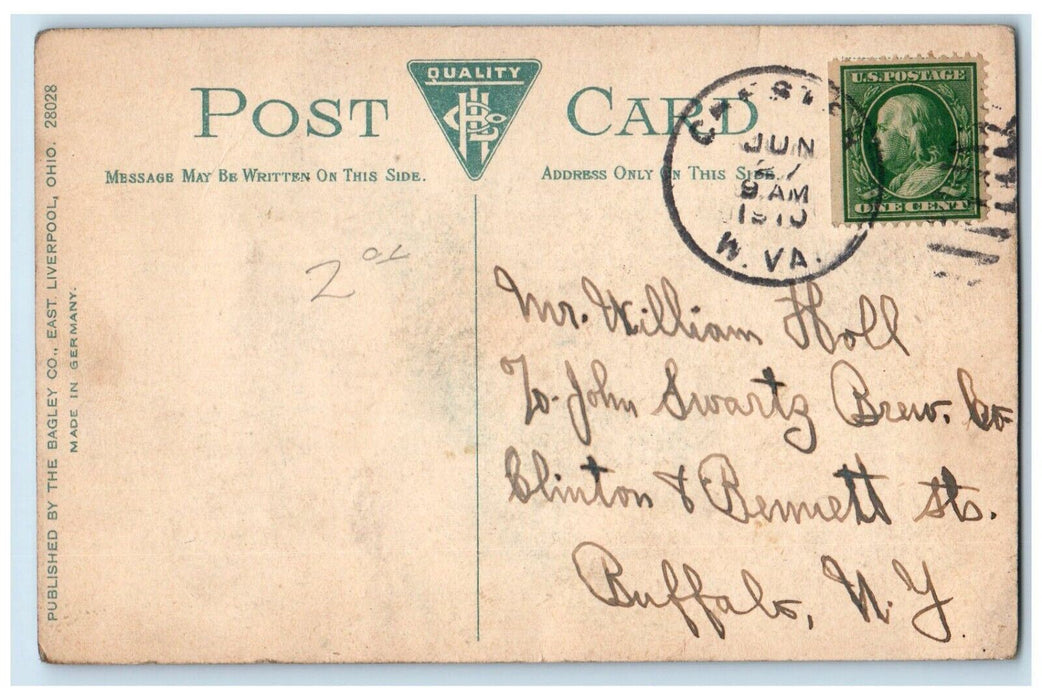 POST CARD
QUALITY
MESSAGE MAY BE WRITTEN ON THIS SIDE.
ADDRESS ONLY ON THIS SIDE.
U.S. POSTAGE
ONE CENT
CHESTER
JUN
27
9 AM
1910
W. VA.
2 00
Mr. William Holl
To John Swartz Brew. Co
Clinton & Bennett Sts.
Buffalo, N.Y.
PUBLISHED BY THE BAGLEY CO., EAST LIVERPOOL, OHIO. 28028
MADE IN GERMANY.